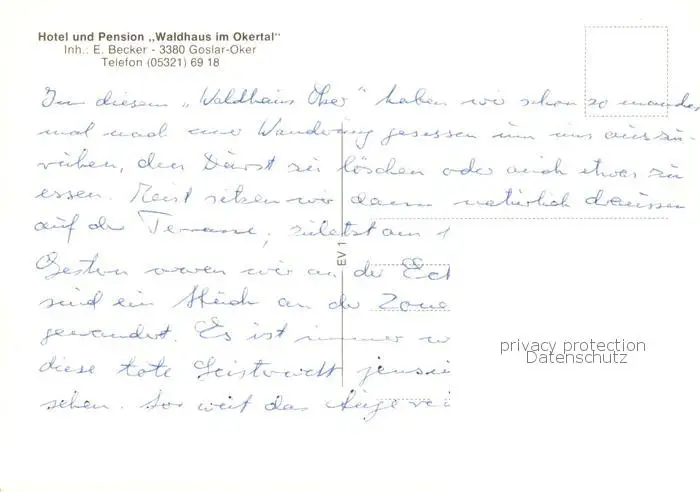 Hotel und Pension „Waldhaus im Okertal"
Inh.: E. Becker - 3380 Goslar-Oker
Telefon (05321) 69 18
In diesem „Waldhaus Oker" haben wir schon so manches
mal nach einer Wanderung gesessen um uns auszu-
ruhen, den Durst zu löschen oder auch etwas zu
essen. Meist sitzen wir dann natürlich draussen
auf der Terrasse, zuletzt am
Gestern waren wir an der Eck
sind ein Stück an der Zone
gewandert. Es ist immer
diese tote Geisterwelt jensei
sehen. So weit das Auge rei
EV 1
privacy protection
Datenschutz